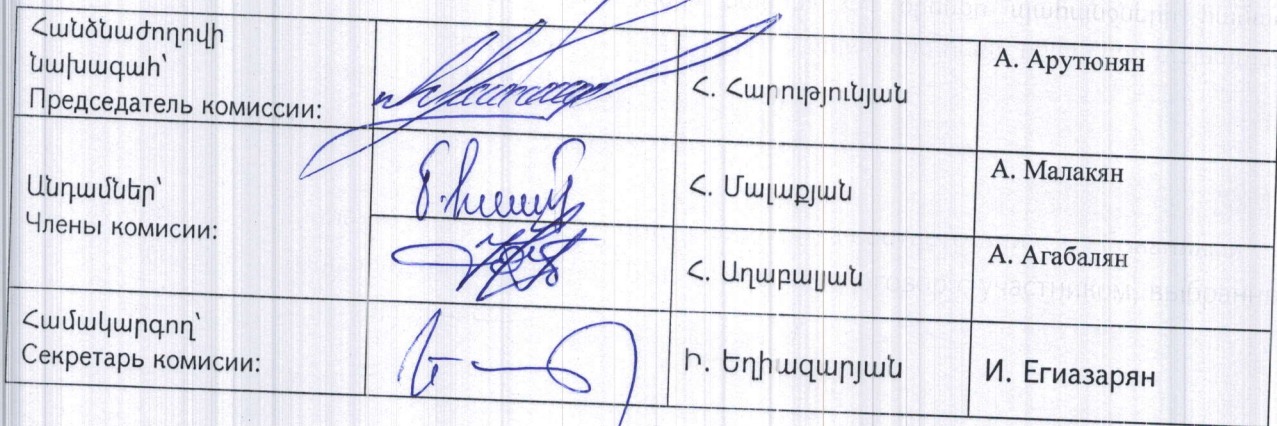 Հանձնաժողովի
նախագահ՝
Председатель комиссии:
Հ. Հարությունյան
А. Арутюнян
Անդամներ՝
Члены комисии:
Հ. Մալաքյան
А. Малакян
Հ. Աղաբալյան
А. Агабалян
Համակարգող՝
Секретарь комисии:
Ի. Եղիազարյան
И. Егиазарян